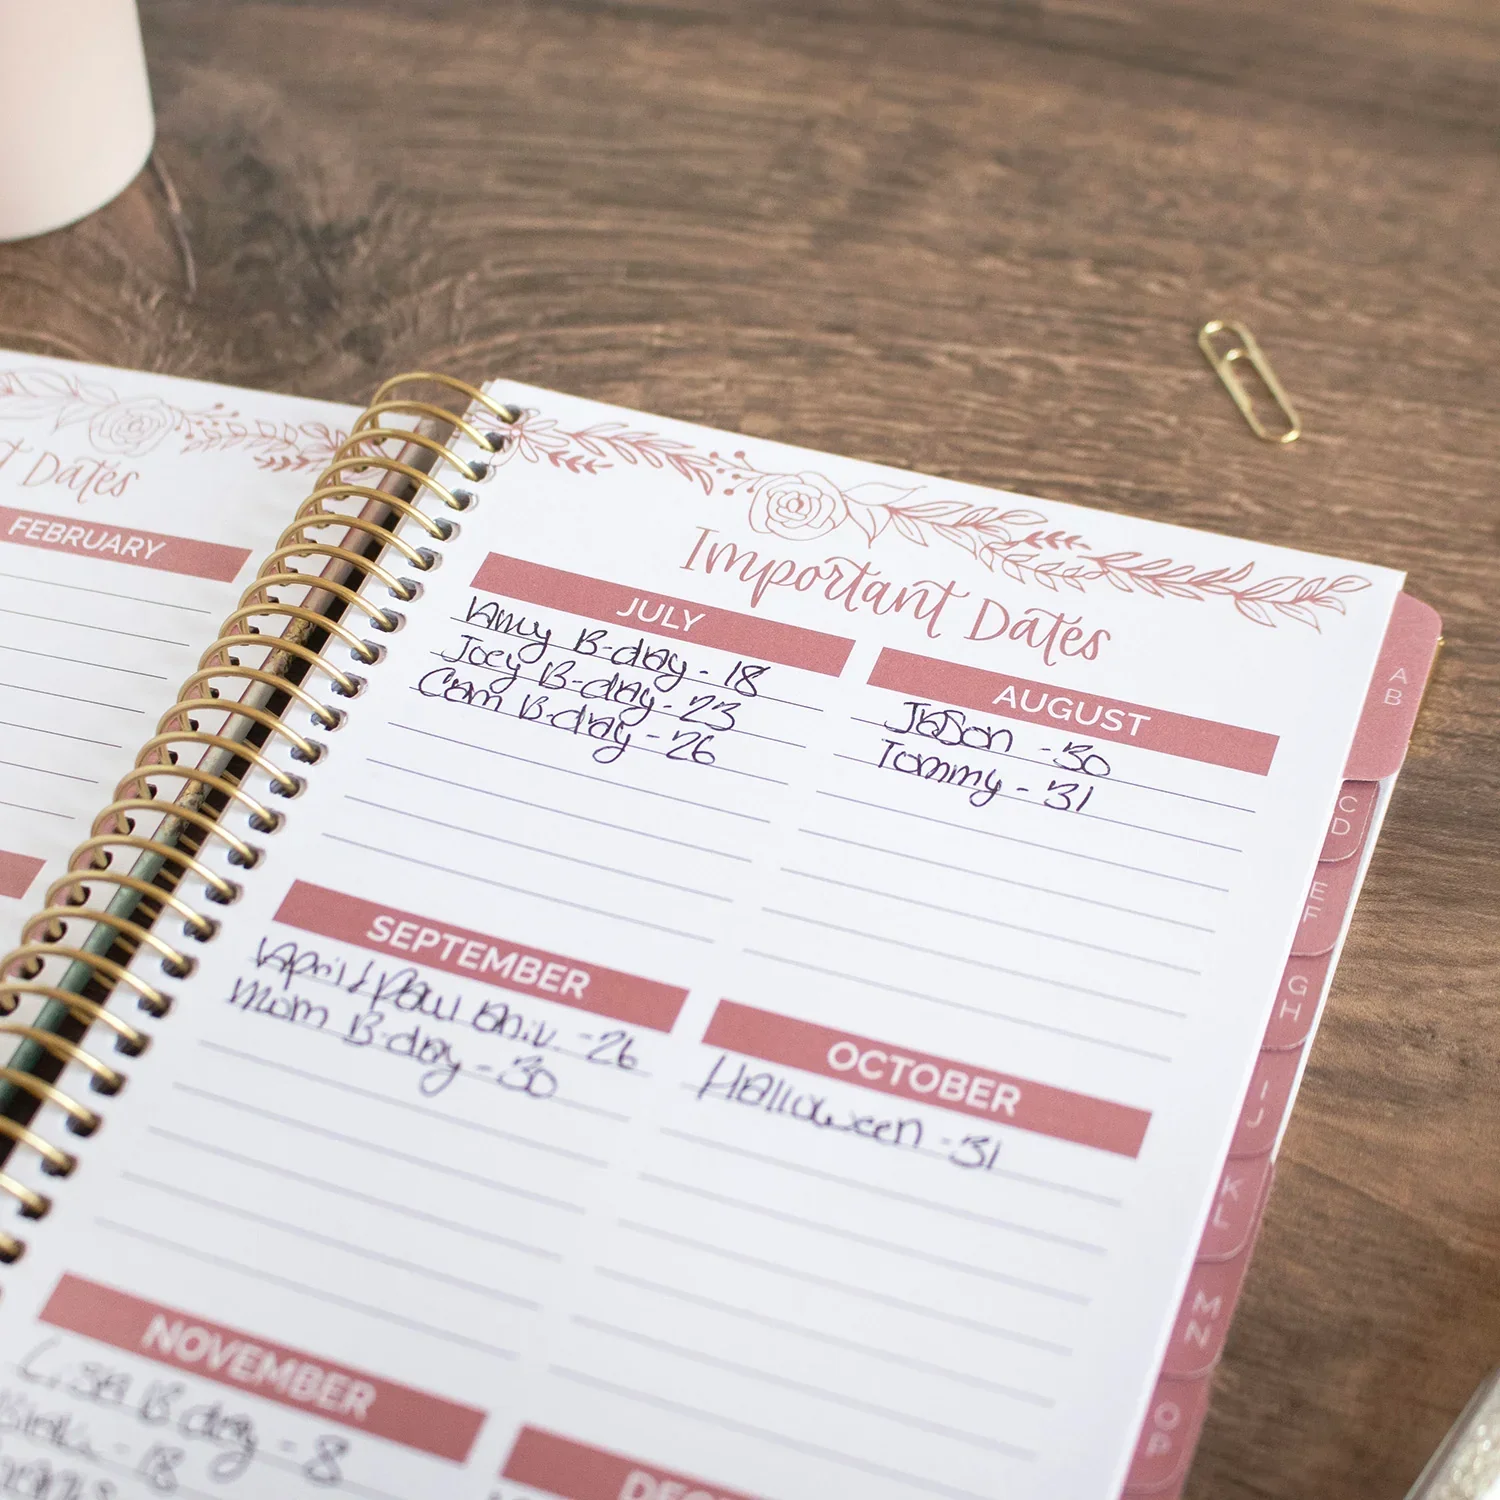 t Dates
FEBRUARY
Important Dates
JULY
Amy B-day - 18
Joey B-day - 23
Cam B-day - 26
AUGUST
Jason - 30
Tommy - 31
SEPTEMBER
April / Paul Aniv. - 26
Mom B-day - 30
OCTOBER
Halloween - 31
NOVEMBER
Lisa B day - 8
- 18
DEC
A B
C D
E F
G H
I J
K L
M N
O P